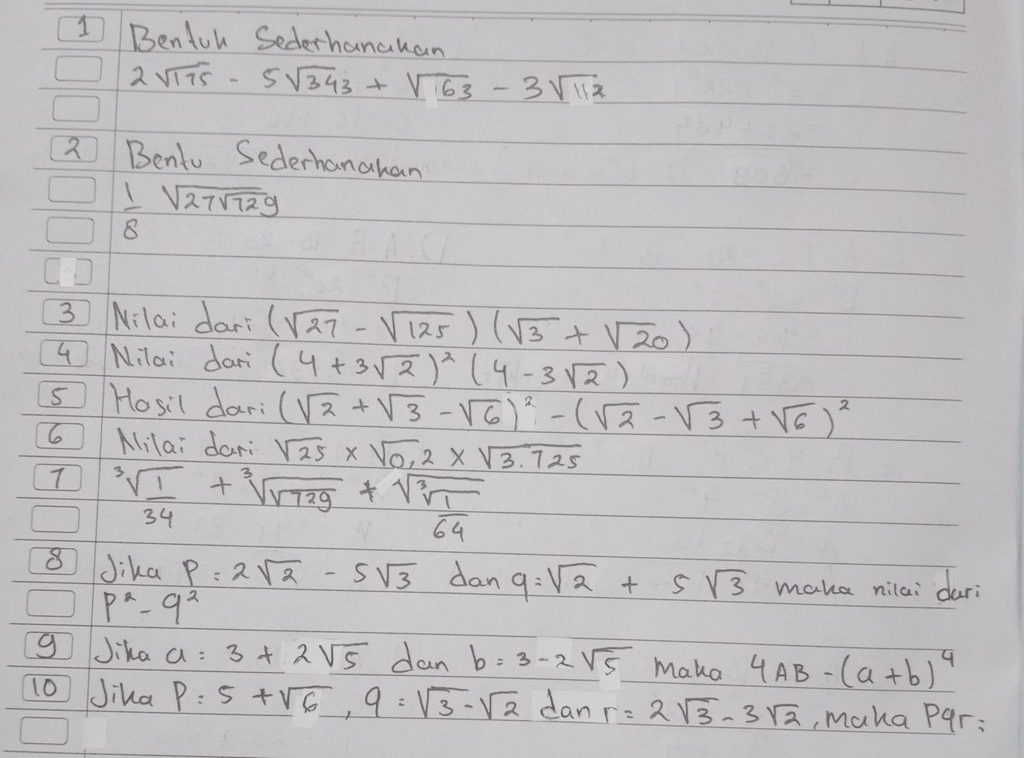 1 Bentuk Sederhanakan
2√175 - 5√343 + √63 - 3√112
2 Bentu Sederhanakan
1/8 √27√729
3 Nilai dari (√27 - √125) (√3 + √20)
4 Nilai dari (4 + 3√2)² (4 - 3√2)
5 Hasil dari (√2 + √3 - √6)² - (√2 - √3 + √6)²
6 Nilai dari √25 × √0,2 × √3.725
7 ³√1/34 + ³√√729 + √³√1/64
8 Jika P = 2√2 - 5√3 dan q = √2 + 5√3 maka nilai dari
P² - q²
9 Jika a = 3 + 2√5 dan b = 3 - 2√5 Maka 4AB - (a + b)⁴
10 Jika P = 5 + √6, q = √3 - √2 dan r = 2√3 - 3√2, maka Pqr =